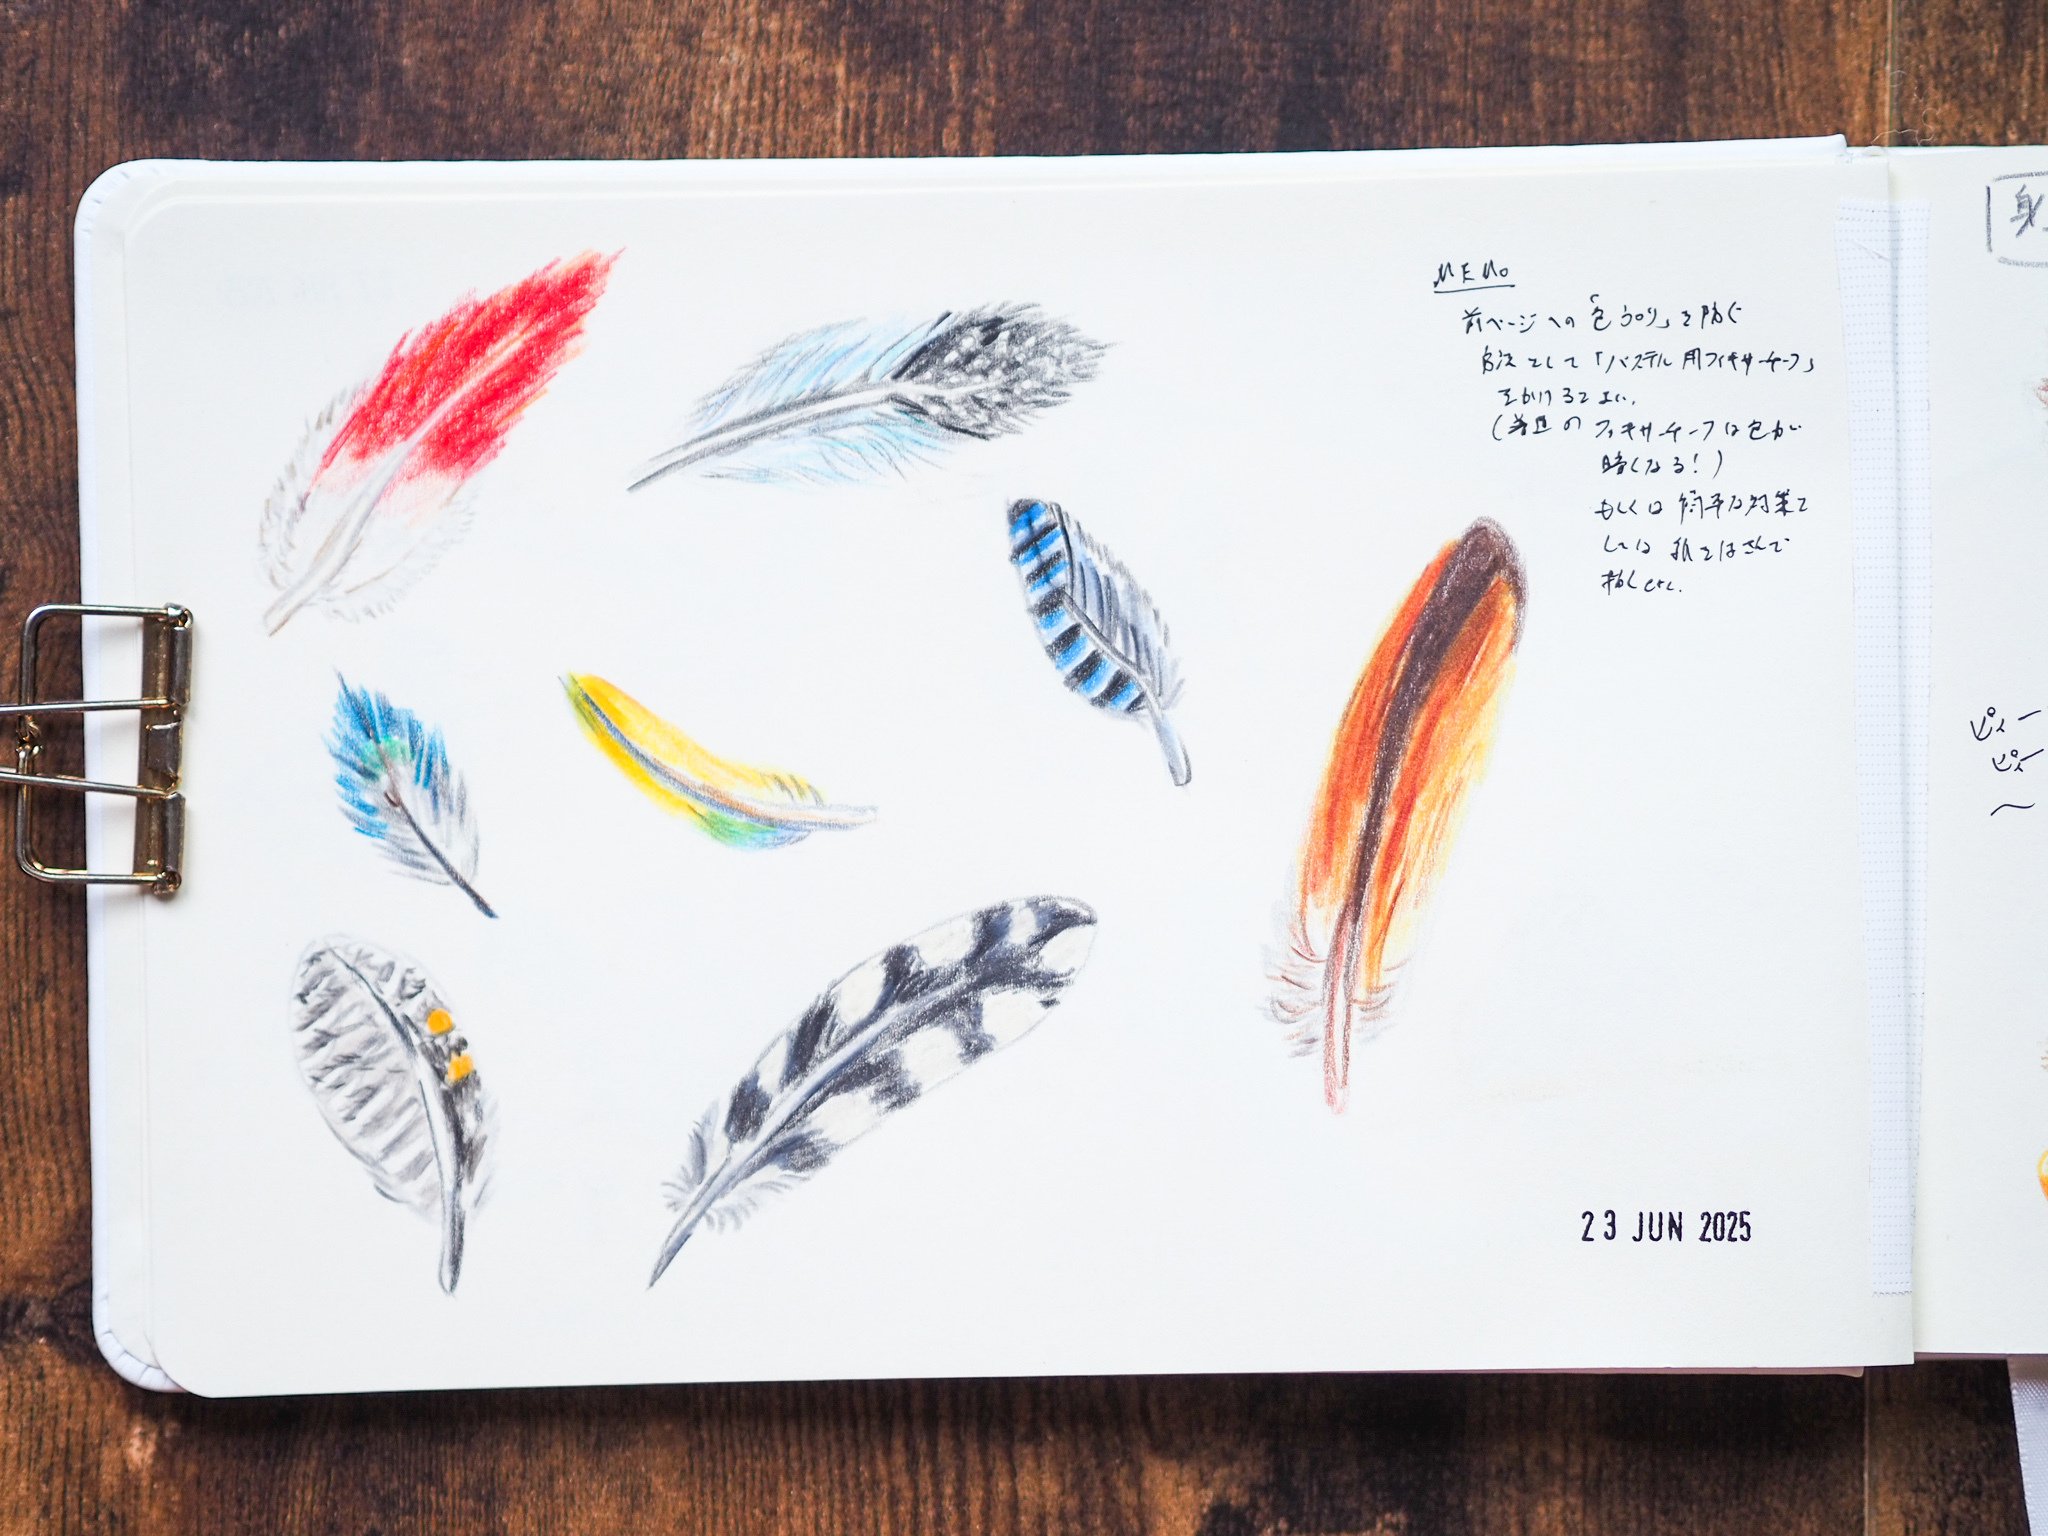 MEMO
前ページへの「色うつり」を防ぐ
方法として「パステル用フィキサチーフ」
をかけるとよい。
(普通のフィキサチーフは色が
暗くなる!)
もしくは簡単な対策と
しては紙をはさんで
etc.
23 JUN 2025
身
ピィー
ピィー
〜